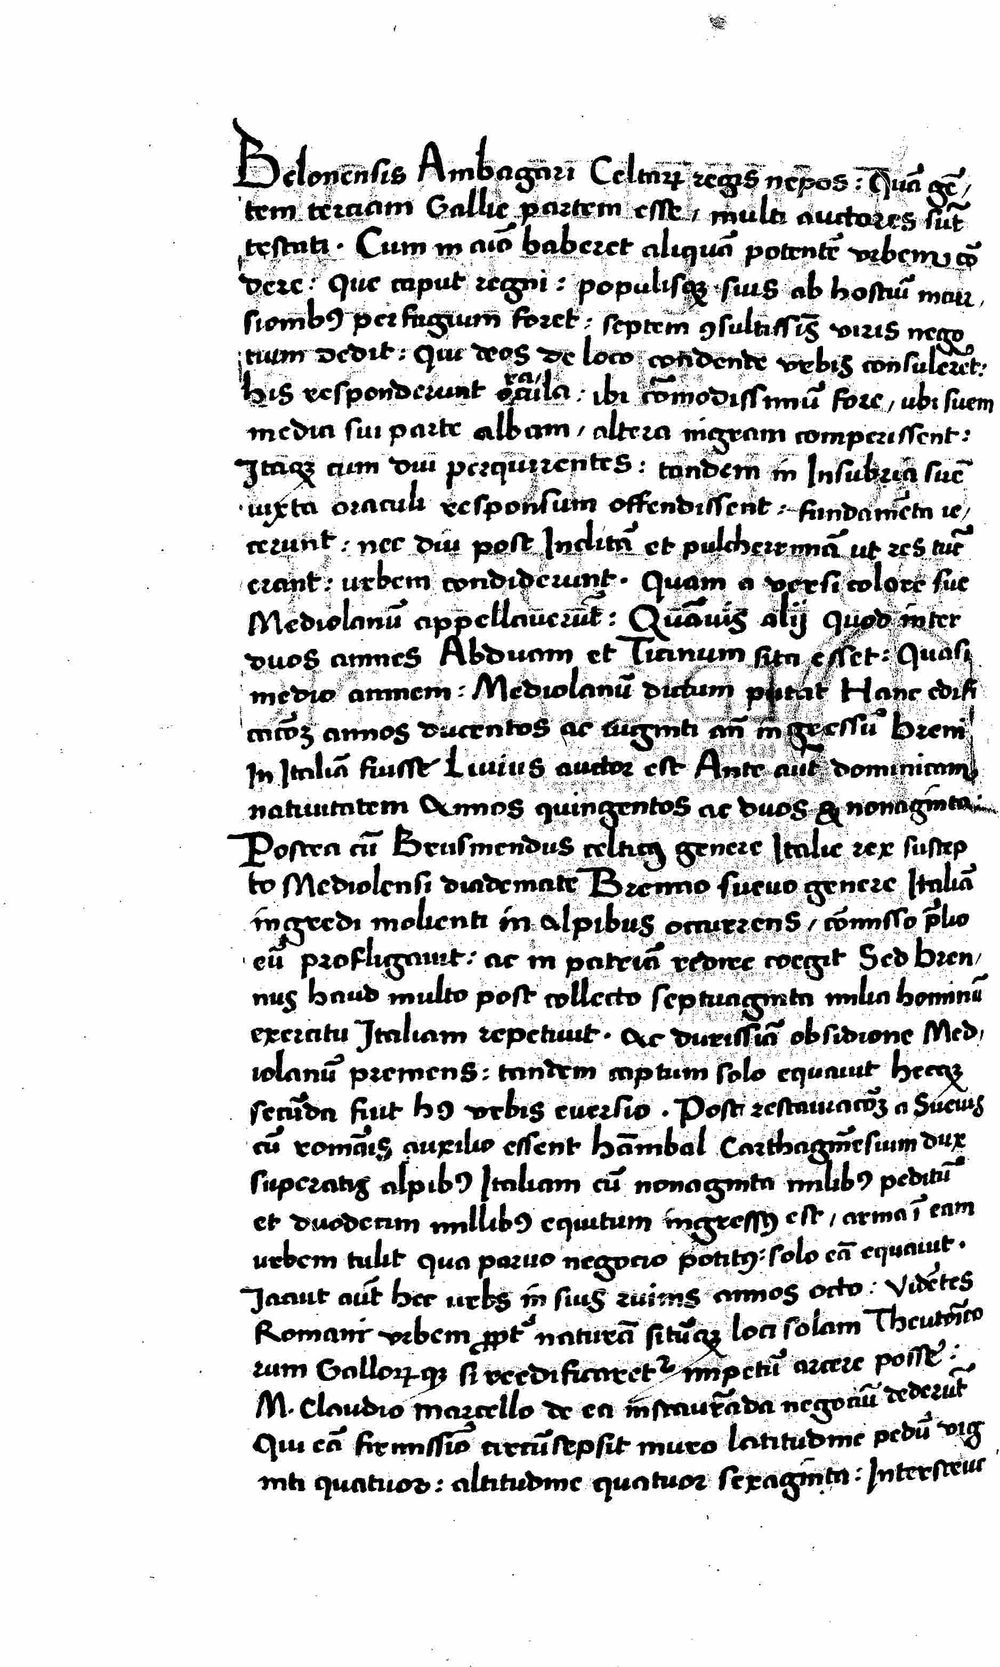 Belonensis Ambagari Celtarꝝ regis nepos: Quā gē/
tem terciam Gallie partem esse, multi auctores sūt
testati. Cum in aīo haberet aliquā potentē urbem cō
dere: Que caput regni: populisqꝫ suis ab hostiū incur,
sionibꝰ perfugium foret: septem ꝯsultissīs viris nego
tium dedit: Qui deos de loco condende urbis consulerēt:
his responderunt oracula: ibi cōmodissimū fore, ubi suem
media sui parte albam, altera nigram comperissent:
Itaqꝫ cum diu perquirentes: tandem in Insubria suē
iuxta oraculi responsum offendissent: fundamēta ie/
cerunt: nec diu post Inclitā et pulcherrimā ut res tūc
erant: urbem condiderunt. Quam a versicolore sue
Mediolanū appellauerūt: Quāuis alij quod inter
duos amnes Abduam et Ticinum sita esset: Quasi
medio amnem: Mediolanū dictum putāt Hanc edifi
cacōꝫ annos ducentos ac uiginti añ ingressū Breni
In Italiā fuisse Liuius auctor est Ante aūt dominicam
natiuitatem Annos quingentos ac duos & nonaginta.
Postea cū Brusmendus celticꝰ genere Italie rex suscep
to Mediolensi diademate Brenno sueuo genere Italiā
ingredi molienti in alpibus occurrens, cōmisso p̄lio
eū profligauit: ac in patriā redire coegit Sed Bren,
nus haud multo post collecto septuaginta milia hominū
exercitu Italiam repetiuit. Ac durissīa obsidione Med,
iolanū premens: tandem captum solo equauit hecqꝫ
secūda fuit hꝰ urbis euersio. Post restauracōꝫ a Sueuis
cū romāis auxilio essent hāibal Carthaginēsium dux
superatis alpibꝰ Italiam cū nonaginta milibꝰ peditū
et duodecim millibꝰ equitum ingressꝰ est, arma ī eam
urbem tulit qua paruo negocio potitꝰ: solo eā equauit.
Iacuit aūt hec urbs in suis ruinis annos octo: Vidētes
Romani urbem ꝓpt̉ naturā sitūqꝫ loci solam Theutōico
rum Gallorꝝqꝫ si reedificaret᷑ impetū arcere posse:
M. Claudio marcello de ea instaurāda negociū dederūt
Qui eā firmissīo circūsepsit muro latitudine pedū vig
inti quatuor: altitudine quatuor sexaginta: Interseuit